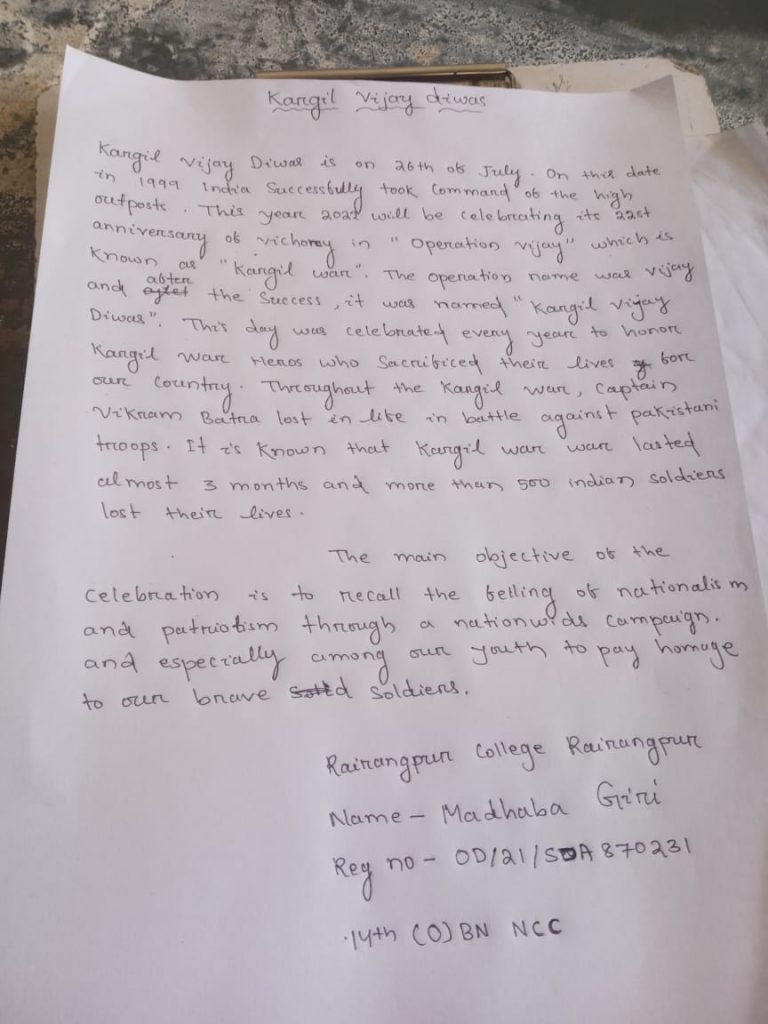 Kargil Vijay diwas
Kargil Vijay Diwas is on 26th of July. On this date
in 1999 India Successfully took Command of the high
outposts. This year 2022 will be celebrating its 22st
anniversary of vichorey in "Operation vijay" which is
Known as "Kargil war". The operation name was vijay
and after the Success, it was named "Kargil vijay
Diwas". This day was celebrated every year to honor
Kargil war Heros who Sacrificed their lives for
our Country. Throughout the Kargil war, Captain
Vikram Batra lost in life in battle against pakistani
troops. It is Known that Kargil war war lasted
almost 3 months and more than 500 indian soldiers
lost their lives.
The main objective of the
Celebration is to recall the felling of nationalism
and patriotism through a nationwids campaign.
and especially among our youth to pay homage
to our brave soldiers.
Rairangpur College Rairangpur
Name - Madhaba Giri
Reg no - OD/21/SDA870231
14th (O) BN NCC